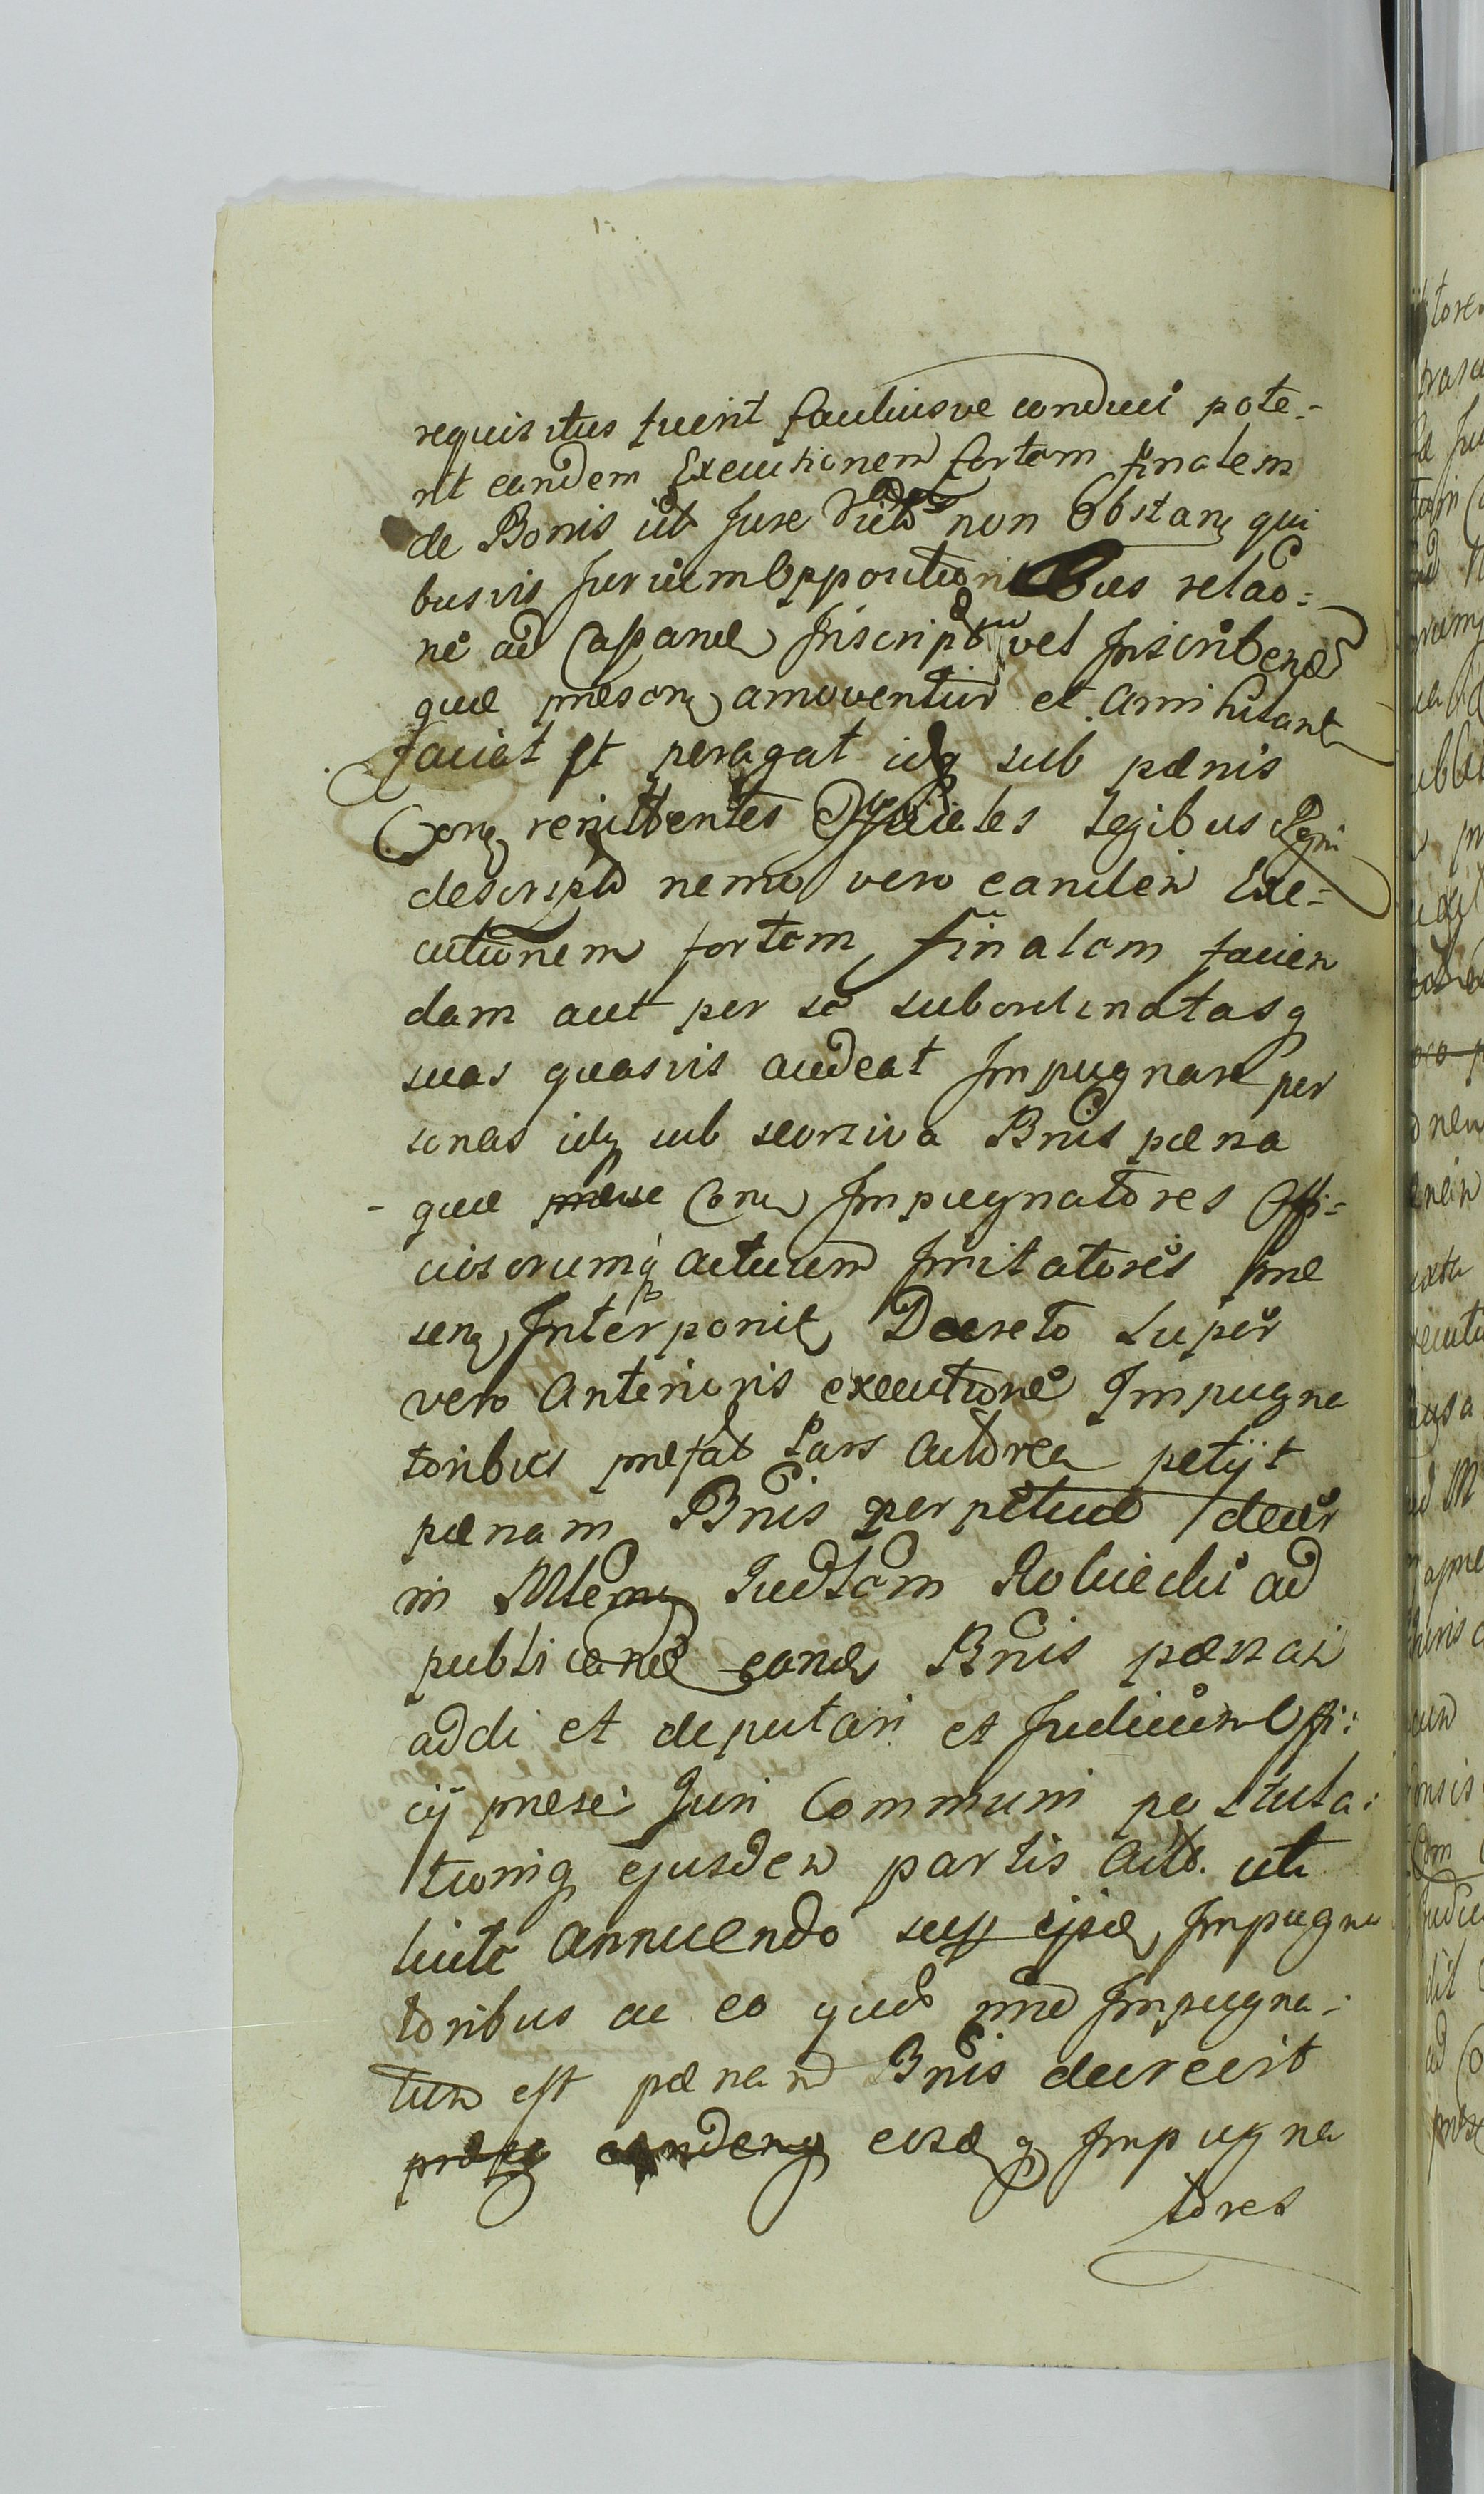 requisitus fuerit faciliusve conduci pote-
rit eandem Executionem fortem finalem
de Bonis ut Jure Vict non Obstan qui
busvis Juriumoppositionibus relao:
ne ad Cassand Inscript vel Inscribend
quæ præsen amoventur et annihilant
faciat et peragat idq sub pænis
Con renittentes Officiales Legibus Regni
descript nemo vero eandem Exe-
cutionem fortem finalem facien
dam aut per se subordinatasq
suas quasvis audeat Impugnare per
sonas idq sub seorsiva Bnis pæna
quæ Con Impugnatores Offi-
ciosorumq actuum Irritatores præ
sen Interponit Decreto Super
vero Anterioris executione Impugna
toribus præfat Pars Actorea petijt
pænam Bnis perpetuæ decer
ni Mlem Judlem Roliecki ad
publicand eand Bnis pænam
addi et deputari et Judiciumoffi:
cij præse: Juri Communi postula:
tioniq ejusdem partis Act. uti
licite annuendo sup ijsd Impugna
toribus ac eo quod Impugna:
tum est pænam Bnis decrevit
eosd q Impugna
tores